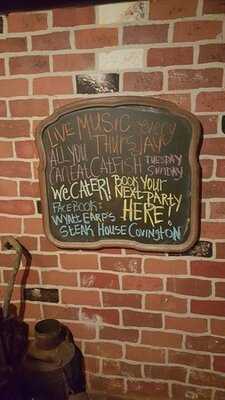 LIVE MUSIC every
THURSDAY
ALL YOU
CAN EAT CATFISH TUESDAY
SUNDAY
WE CATER! BOOK YOUR
NEXT PARTY
HERE!
FACEBOOK:
WYATT EARPS
STEAK HOUSE COVINGTON